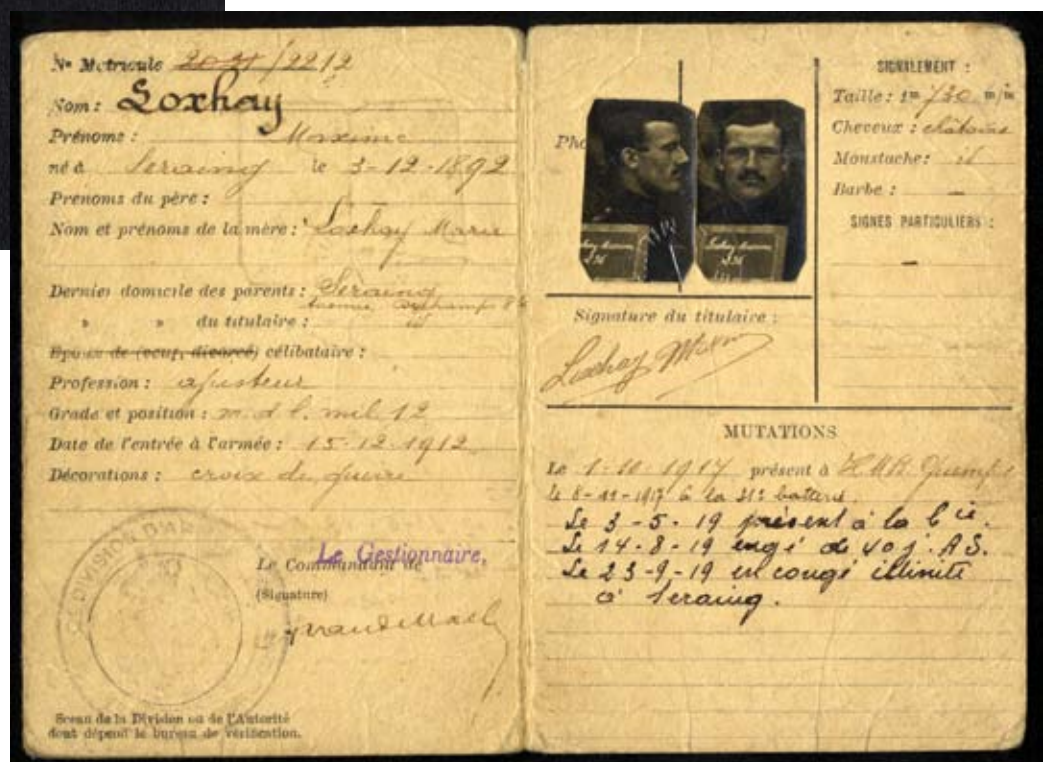 Nº Matricule 2031/2212
Nom : Loxhay
Prénoms : Maxime
né à Seraing le 3-12-1892
Prénoms du père :
Nom et prénoms de la mère : Loxhay Marie
Dernier domicile des parents : Seraing
" " du titulaire : id
Epoux de (veuf, divorcé) célibataire :
Profession : ajusteur
Grade et position : m.d.l. mil 12
Date de l'entrée à l'armée : 15-12-1912
Décorations : croix de guerre
Le Commandant de
Le Gestionnaire,
(Signature)
DIVISION
Sceau de la Division ou de l'Autorité
dont dépend le bureau de vérification.
Pho
Loxhay Maxime
Signature du titulaire :
Loxhay Maxim
SIGNALEMENT :
Taille : 1m 720 m/m
Cheveux : châtains
Moustache : id
Barbe : —
SIGNES PARTICULIERS :
—
MUTATIONS
Le 1-10-1917 présent à H.M.B.
le 8-11-1917 à la 31e batterie.
Le 3-5-19 présent à la Cie.
Le 14-8-19 engé de 40 j. A.S.
Le 23-9-19 en congé illimité
à Seraing.